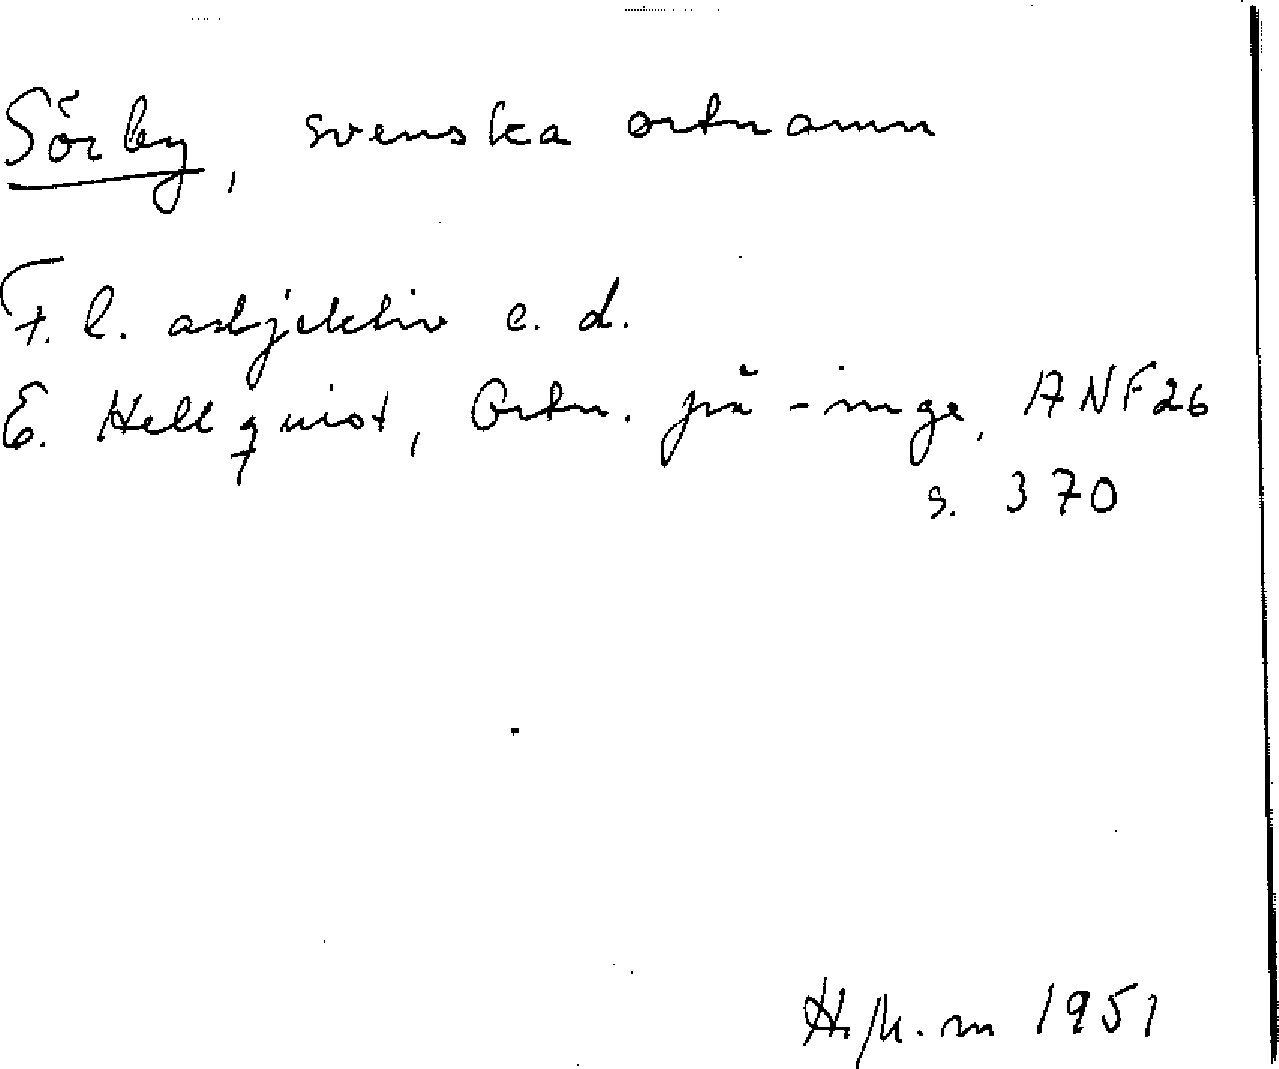 Sörby, svenska ortnamn
F. l. adjektiv e. d.
E. Hellquist, Ortn. på -inge, ANF 26
s. 370
1951